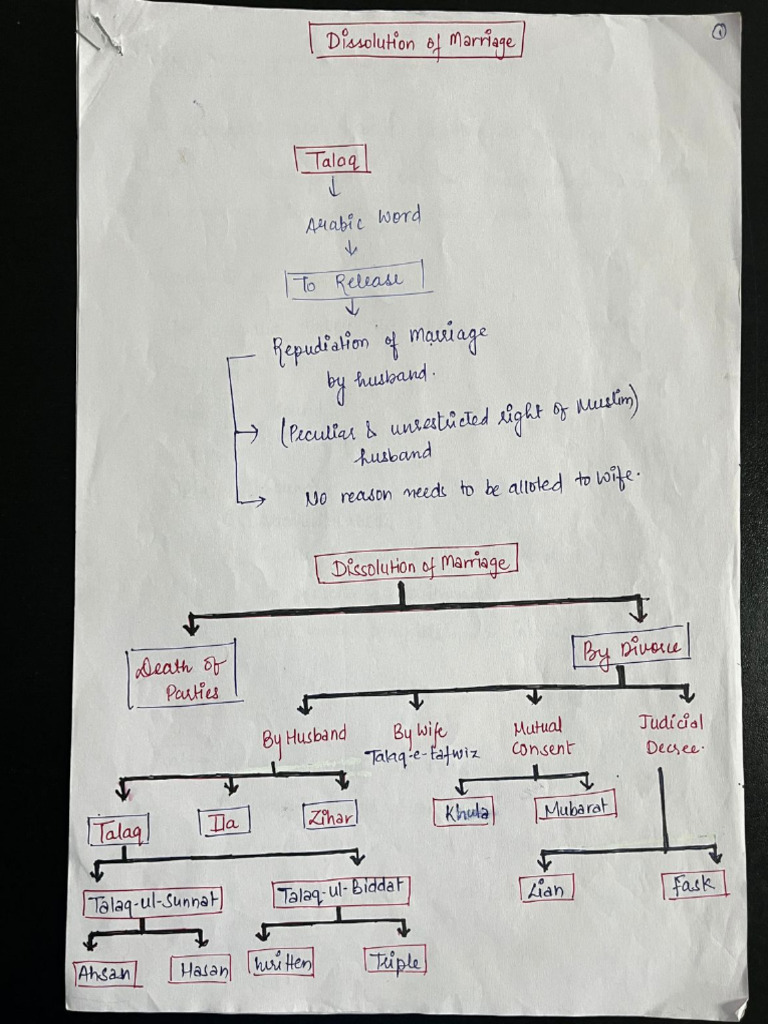 1
Dissolution of Marriage
Talaq
Arabic Word
To Release
Repudiation of Marriage
by husband.
(Peculiar & unrestricted right of Muslim)
husband
No reason needs to be alloted to wife.
Dissolution of Marriage
Death of
Parties
By Divorce
By Husband
By Wife
Talaq-e-tafwiz
Mutual
Consent
Judicial
Decree.
Talaq
Ila
Zihar
Khula
Mubarat
Talaq-ul-Sunnat
Talaq-ul-Biddat
Lian
Fask
Ahsan
Hasan
Written
Triple